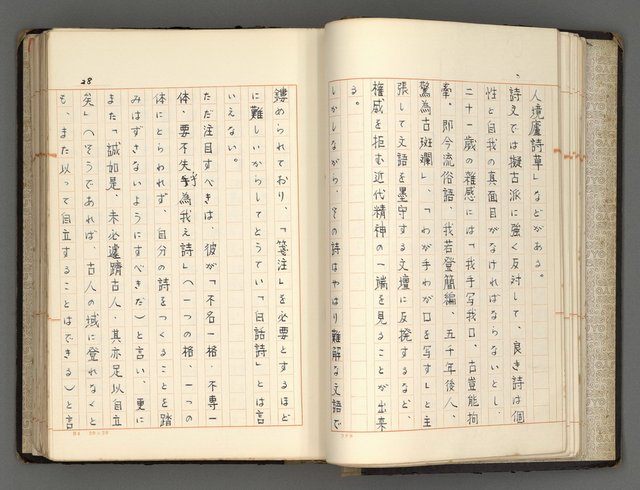 人境廬詩草」などがある。
詩文では擬古派に強く反対して、良き詩は個
性と自我の真面目がなければならないとし、
二十一歳の雑感には「我手写我口、古豈能拘
牽。即今流俗語、我若登簡編、五千年後人、
驚為古斑斕」、「わが手わが口を写す」と主
張して文語を墨守する文壇に反撥するなど、
権威を拒む近代精神の一端を見ることが出来
る。
しかしながら、その詩はやはり難解な文語で
28
鏤められており、「箋注」を必要とするほど
に難しいからしてとうてい「白話詩」とは言
いえない。
ただ注目すべきは、彼が「不名一格、不専一
体、要不失乎為我之詩」へ一つの格、一つの
体にとらわれず、自分の詩をつくることを踏
みはずさないようにすべきだ)と言い、更に
また「誠如是、未必遽躋古人、其亦足以自立
矣」へそうであれば、古人の域に登れなくと
も、また以って自立することはできる)と言